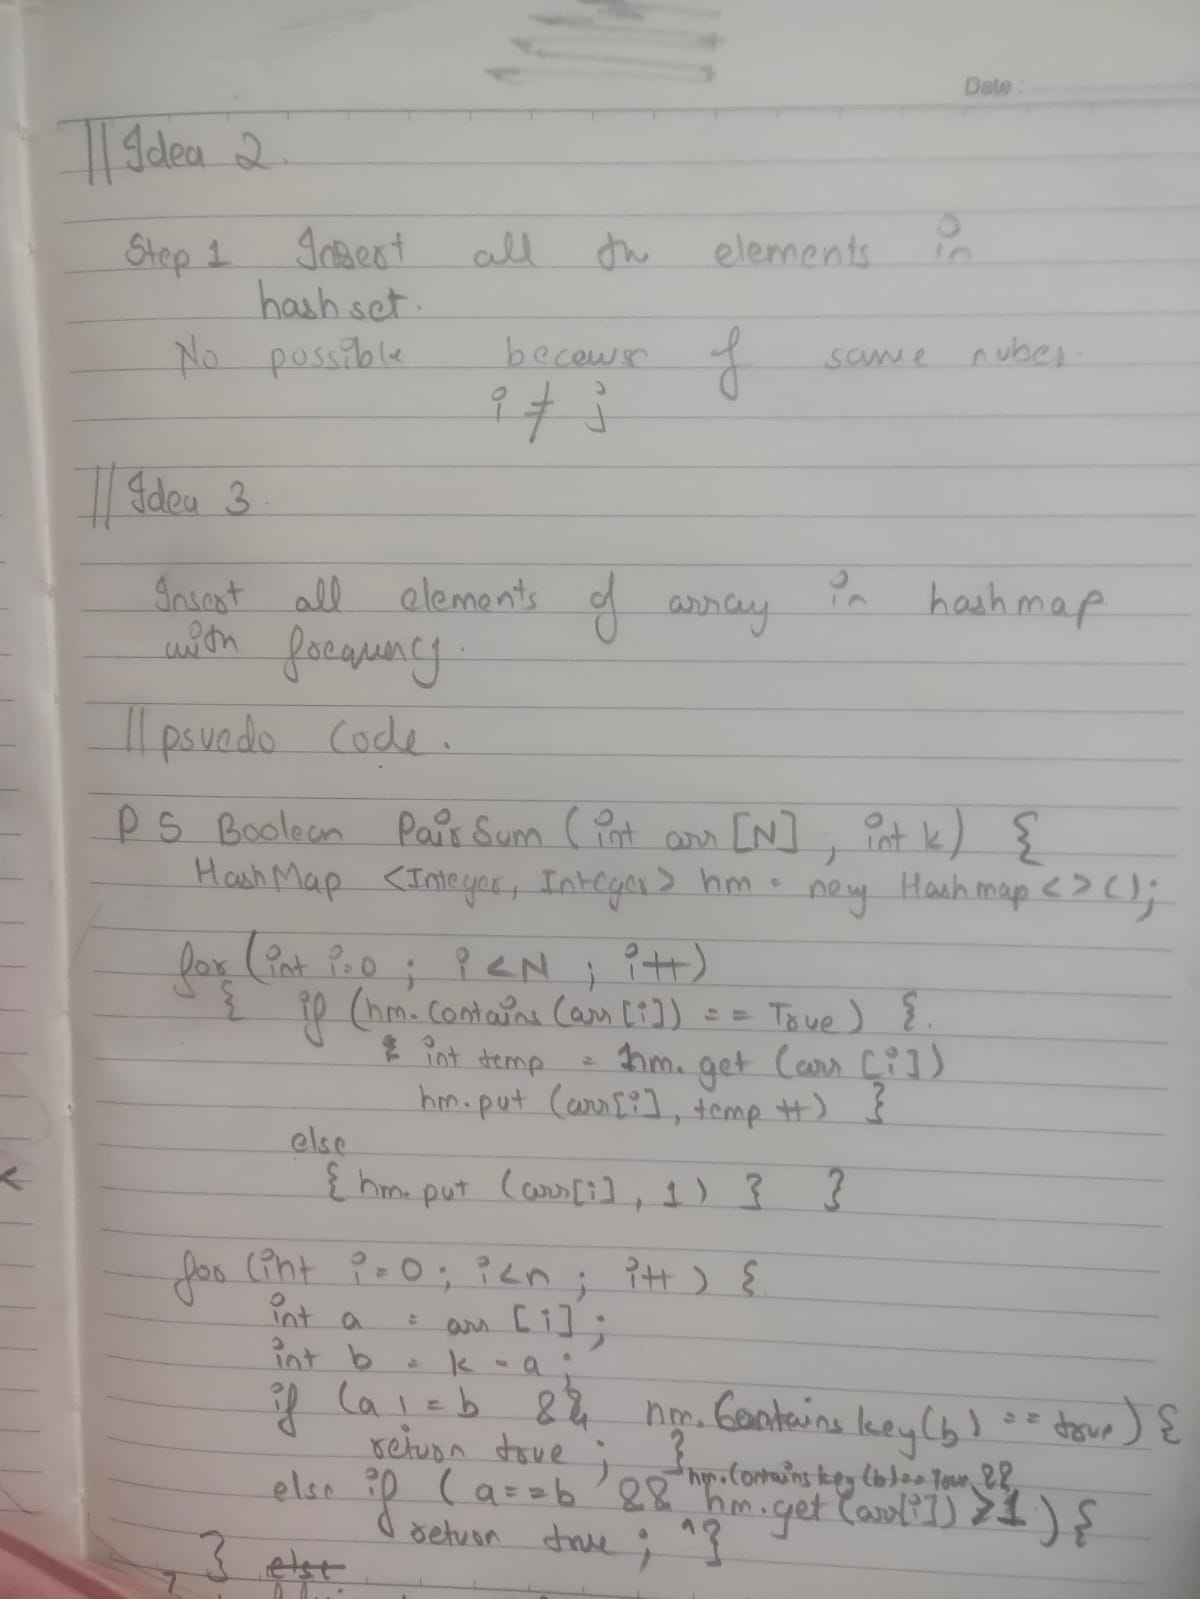 Date :
// Idea 2.
Step 1 Insert all the elements in
hash set.
No possible becewse of same nuber.
i ≠ j
// Idea 3.
Insert all elements of array in hashmap
with frequency.
// psuedo Code.
P S Boolean PairSum (int arr [N], int k) {
HashMap <Integer, Integer> hm = new Hashmap <> ();
for (int i=0 ; i<N ; i++)
{ if (hm. Contains (arr [i]) == True) {.
int temp = hm. get (arr [i])
hm. put (arr[i], temp ++) }
else
{ hm. put (arr[i], 1) } }
for (int i=0; i<n ; i++) {
int a = arr [i];
int b = k - a;
if (a != b && hm. Contains key(b) == true) {
return true ; }
hm. Contains key (b) == True &&
else if (a==b && hm.get (arr[i]) >1) {
return true ; }
} else